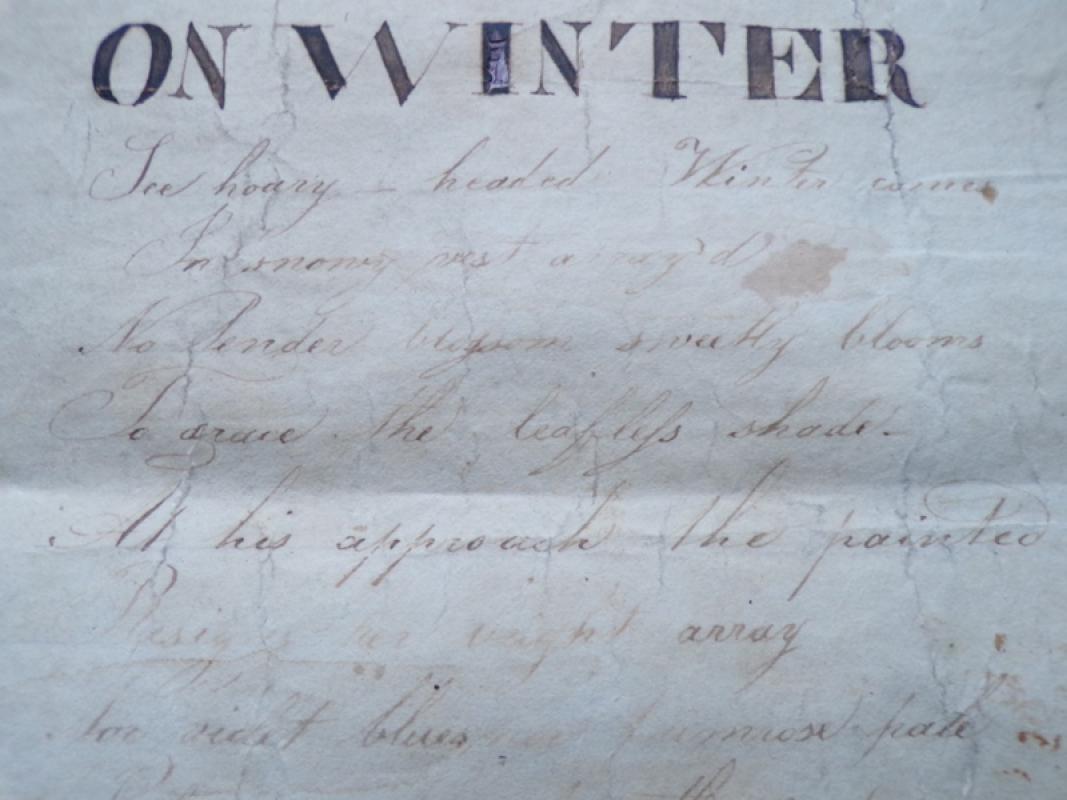 ON WINTER
See hoary - headed Winter comes
In snowy vest array'd
No tender blossom sweetly blooms
To grace the leafless shade.
At his approach the painted
Resigns her bright array
Nor violet blues nor primrose pale